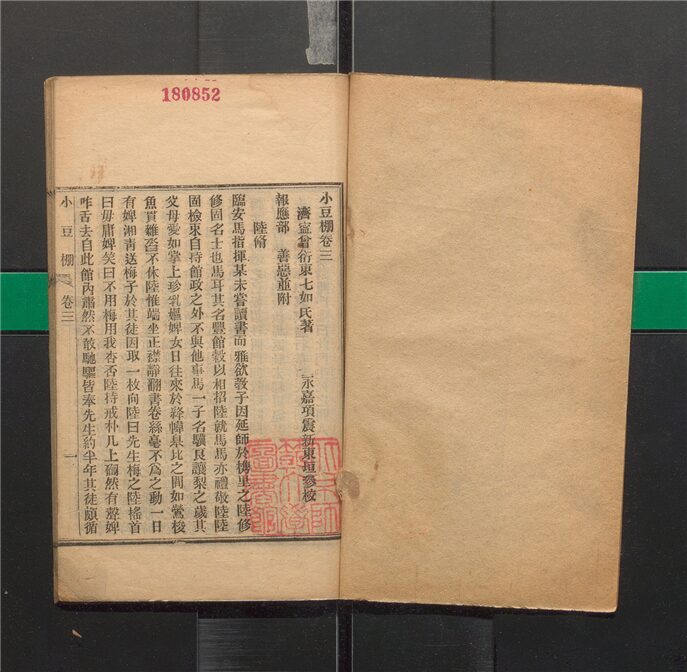 180852
小豆棚卷三
濟寧曾衍東七如氏著 永嘉項震新東垣參校
報應部 善惡並附
陸脩
臨安馬指揮某未嘗讀書而雅欲教子因延師於檇里之陸修
修固名士也馬耳其名豐館穀以相招陸就馬馬亦禮敬陸陸
固檢束自持館政之外不與他事馬一子名驥良讓梨之歲其
父母愛如掌上珍乳嫗婢女日往來於絳幃臯比之間如鶯梭
魚貫雖吚不休陸惟端坐正襟靜翻書卷絲毫不爲之動一日
有婢湘靑送梅子於其徒因取一枚向陸曰先生梅之陸搖首
曰毋庸婢笑曰不用梅用我杏否陸持戒朴几上碻然有聲婢
咋舌去自此館內肅然不敢馳驅皆奉先生約半年其徒頗循
小豆棚 卷三 一